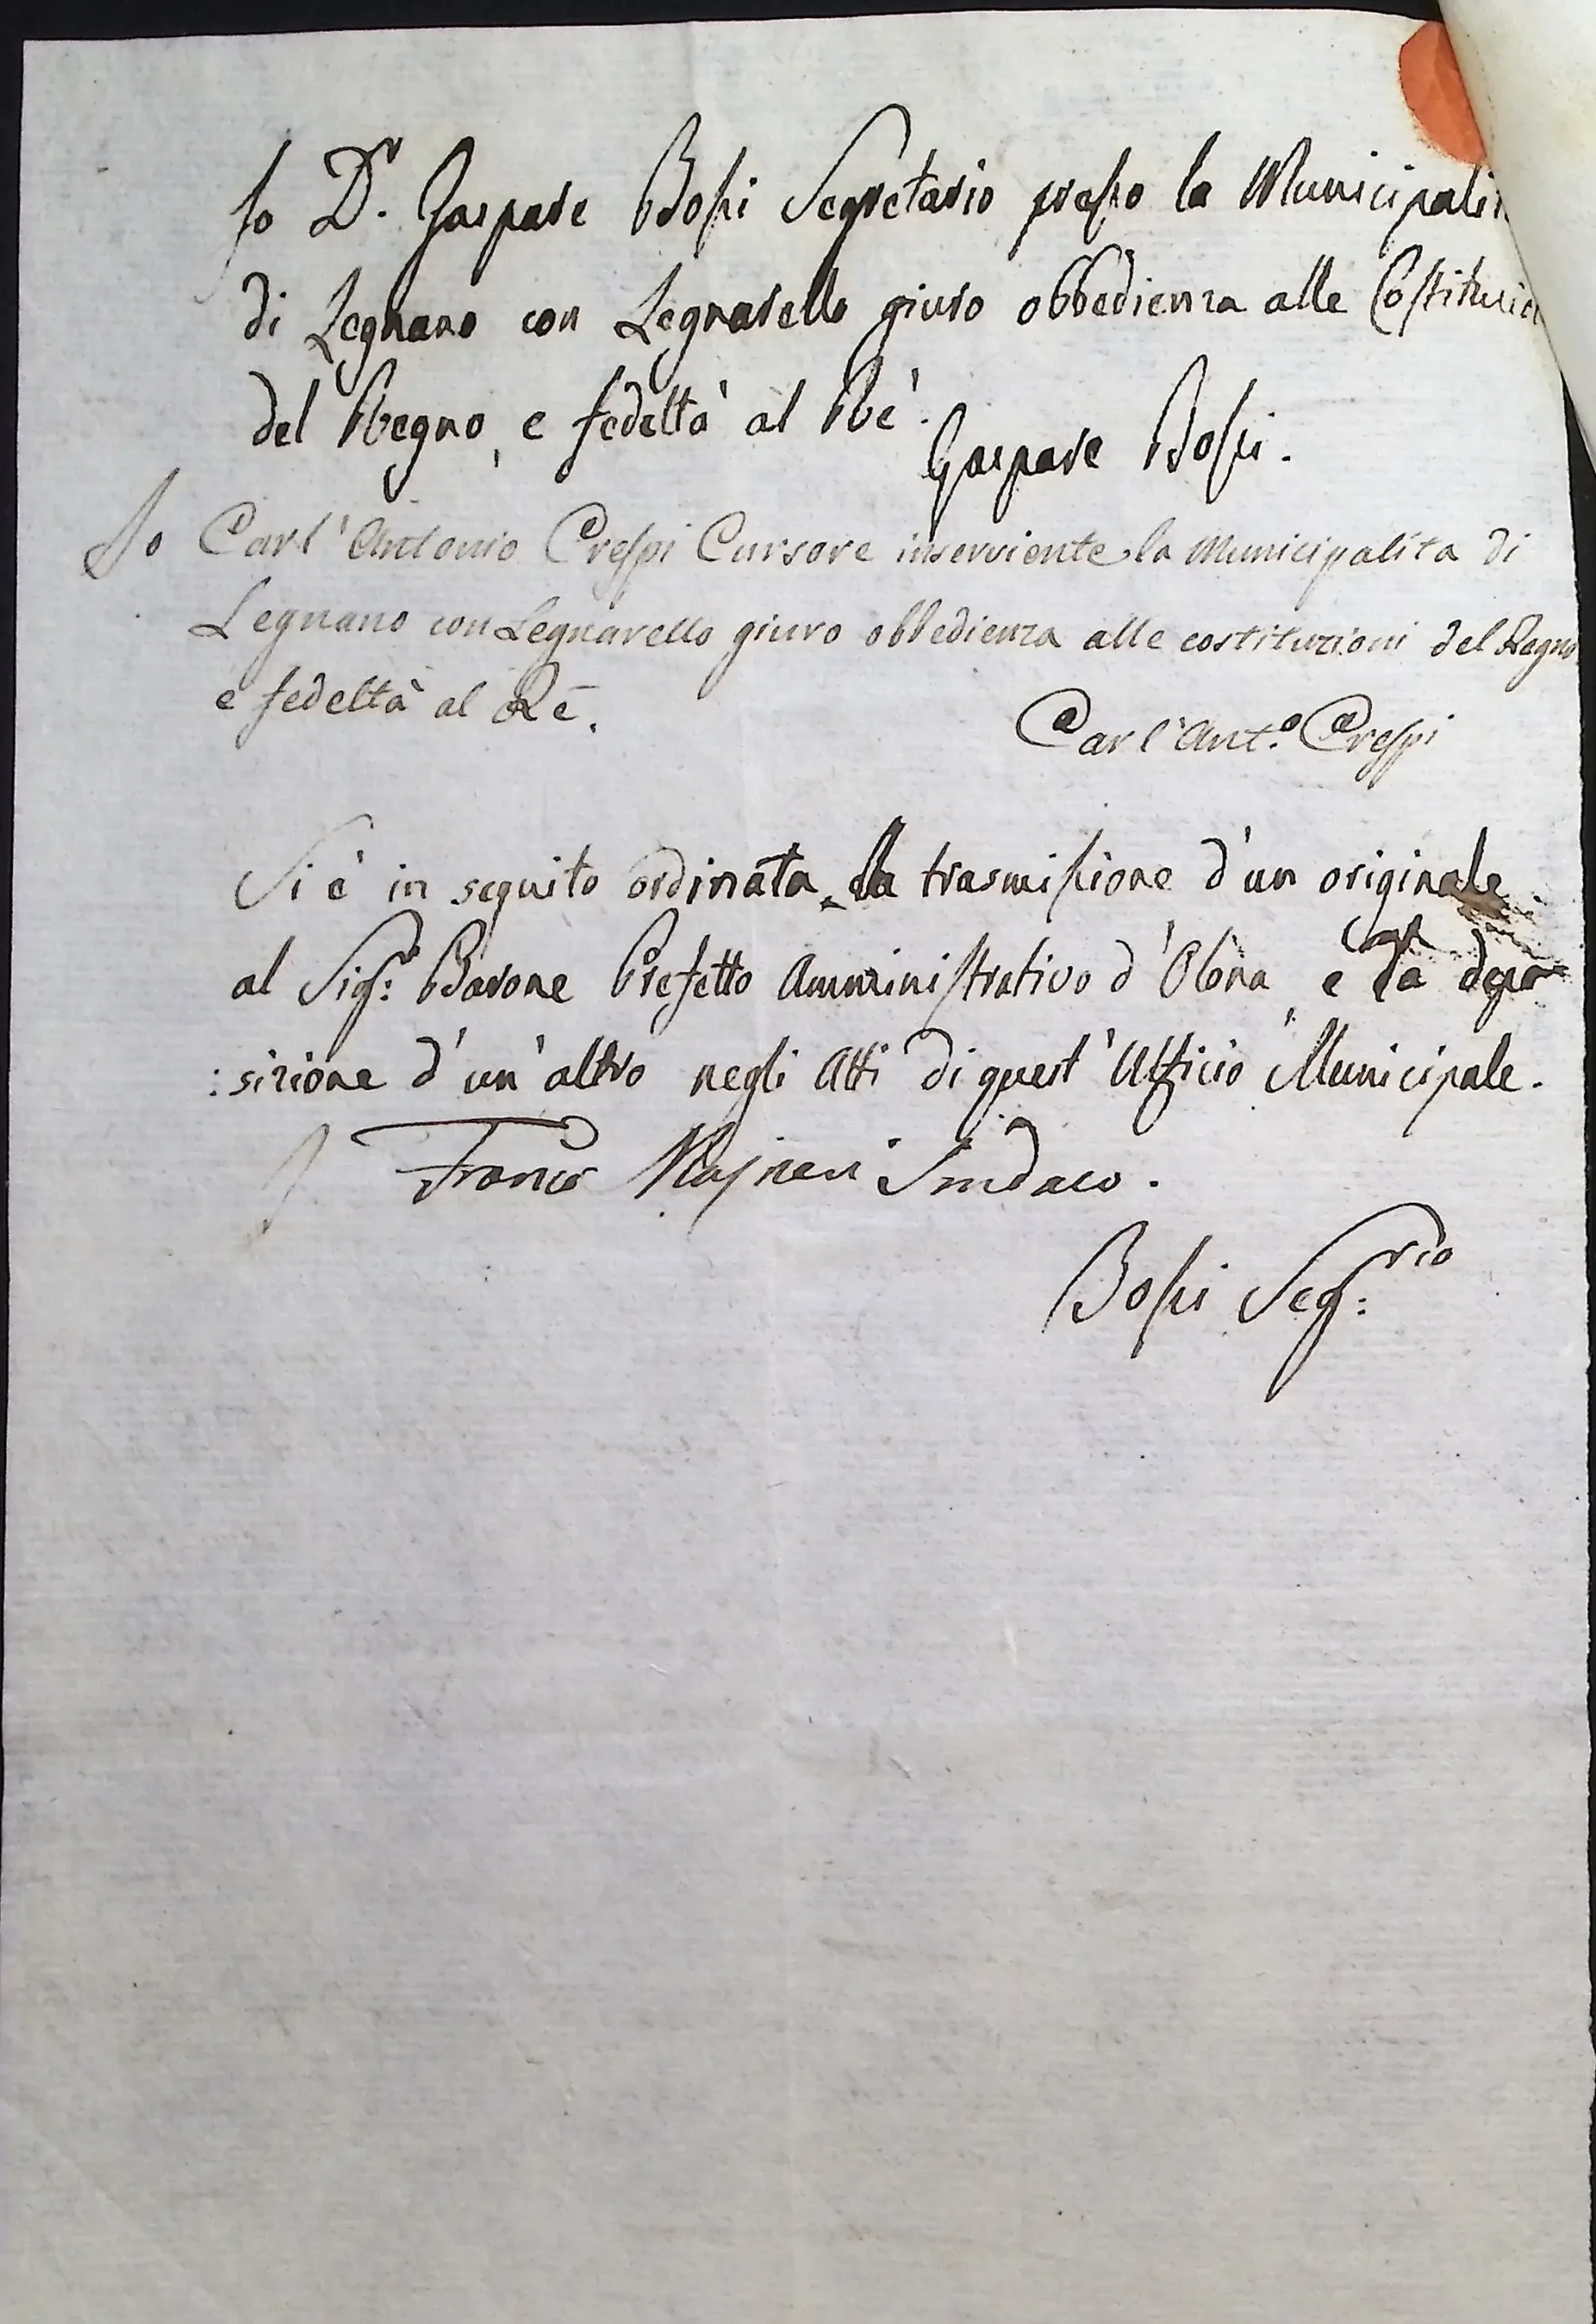 Io D.r Gaspare Bossi Segretario presso la Municipalit
di Legnano con Legnarello giuro obbedienza alle Costituzio
del Regno, e fedeltà al Rè.
Gaspare Bossi.
Io Carl'Antonio Crespi Cursore inserviente la Municipalita di
Legnano con Legnarello giuro obbedienza alle costituzioni del Regno
e fedeltà al Rè.
Carl'Ant.o Crespi
Si è in seguito ordinata la trasmissione d'un originale
al Sig.r Barone Prefetto Amministrativo d'Olona, e la depo
:sizione d'un'altro negli Atti di quest'Ufficio Municipale.
Franco Sindaco.
Bossi Seg:rio